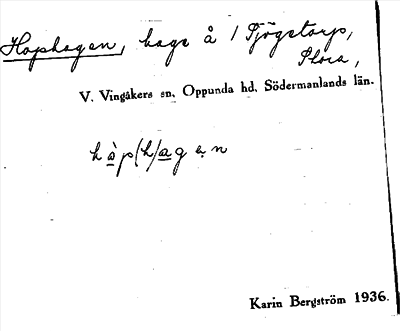 Hophagen, hage å 1 Sjögetorp,
Stora,
V. Vingåkers sn. Oppunda hd. Södermanlands län.
hàp(h)agen
Karin Bergström 1936.